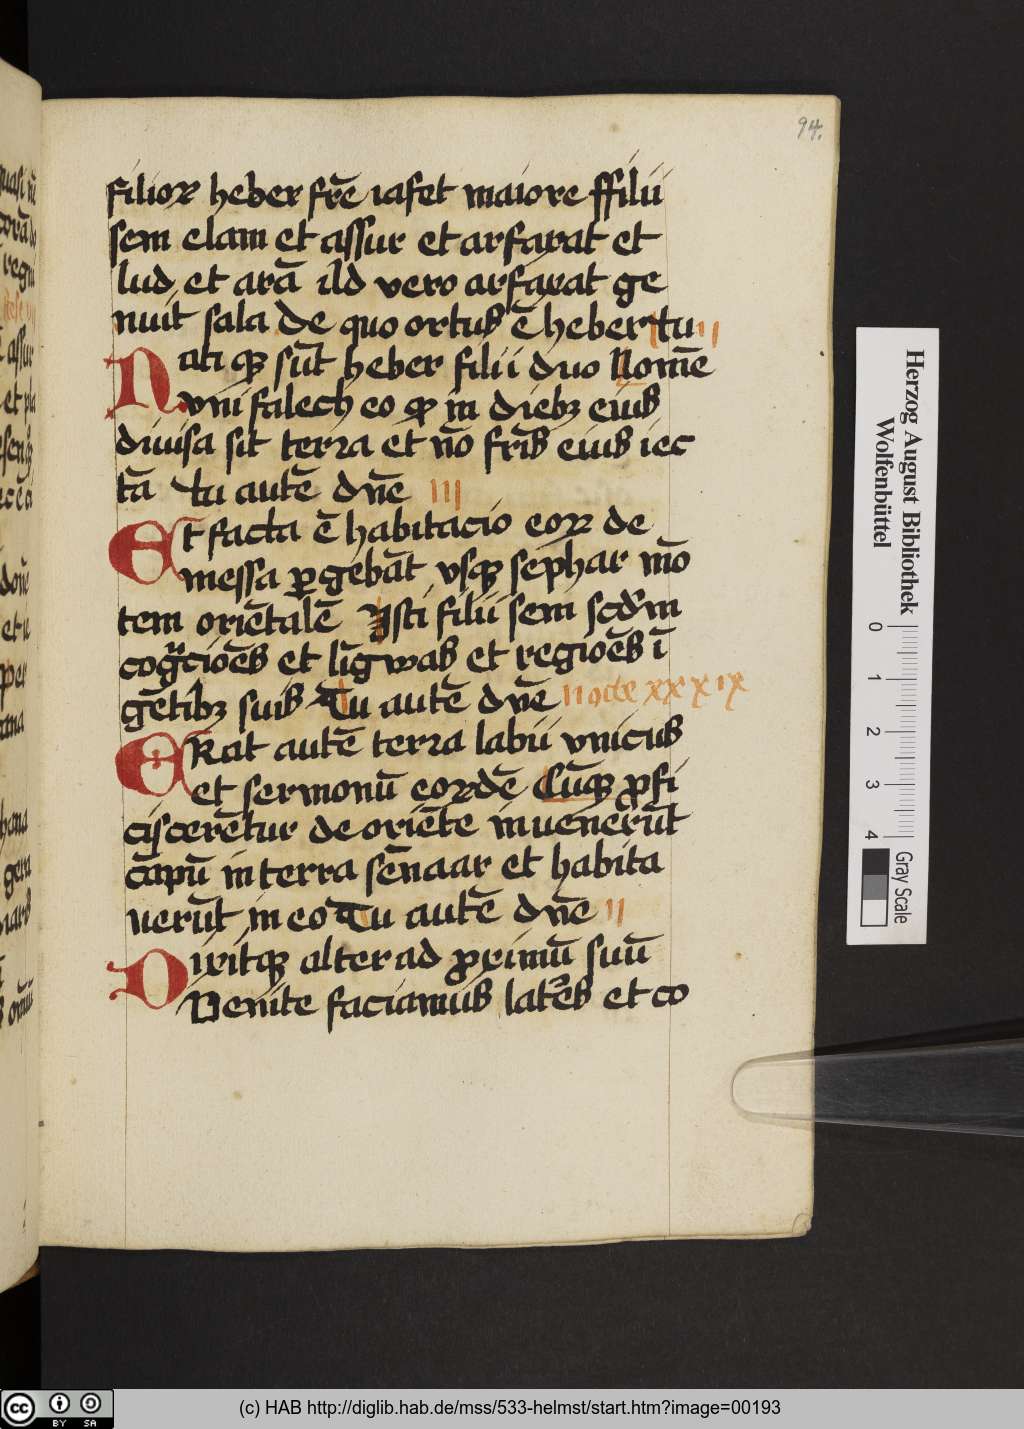 94.
filioꝝ heber fr̄e iafet maiore ffilii
sem elam et assur et arfaxat et
lud et arā ild vero arfaxat ge
nuit sala De quo ortus ē heber tu II
Nati qꝫ sūt heber filii duo Nom̄e
vni falech eo ꝙ in diebꝫ eius
diuisa sit terra et nō fr̄is eius iec
tā Tu autē dn̄e III
Et facta ē habitacio eoꝝ de
messa ꝑgebāt vsqꝫ sephar mō
tem oriētalē Isti filii sem scdm
cogͣcioēs et līgwas et regioēs ī
gētibꝫ suis Tu autē dn̄e nocte xxxix
ERat autē terra labii vnicus
et sermonū eordē Cūqꝫ ꝓfi
ciscerētur de oriēte inuenerūt
cāpū in terra sēnaar et habita
uerūt in eo Tu autē dn̄e II
Dixitqꝫ alter ad ꝓximū suū
Venite faciamus lat̄es et co
Herzog August Bibliothek
Wolfenbüttel
0 1 2 3 4
Gray Scale
cc BY SA
(c) HAB http://diglib.hab.de/mss/533-helmst/start.htm?image=00193